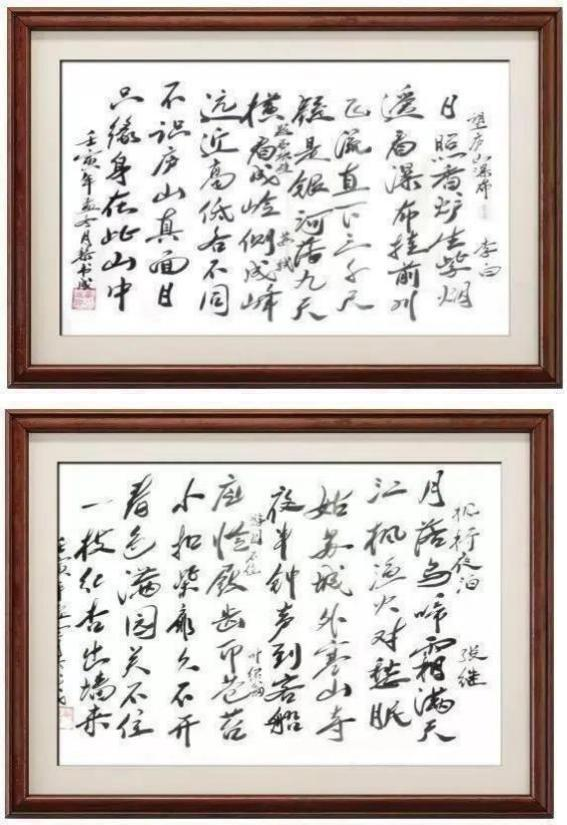 望庐山瀑布 李白
日照香炉生紫烟
遥看瀑布挂前川
飞流直下三千尺
疑是银河落九天
题西林壁 苏轼
横看成岭侧成峰
远近高低各不同
不识庐山真面目
只缘身在此山中
壬寅年
枫桥夜泊 张继
月落乌啼霜满天
江枫渔火对愁眠
姑苏城外寒山寺
夜半钟声到客船
游园不值 叶绍翁
应怜屐齿印苍苔
小扣柴扉久不开
春色满园关不住
一枝红杏出墙来
壬寅年